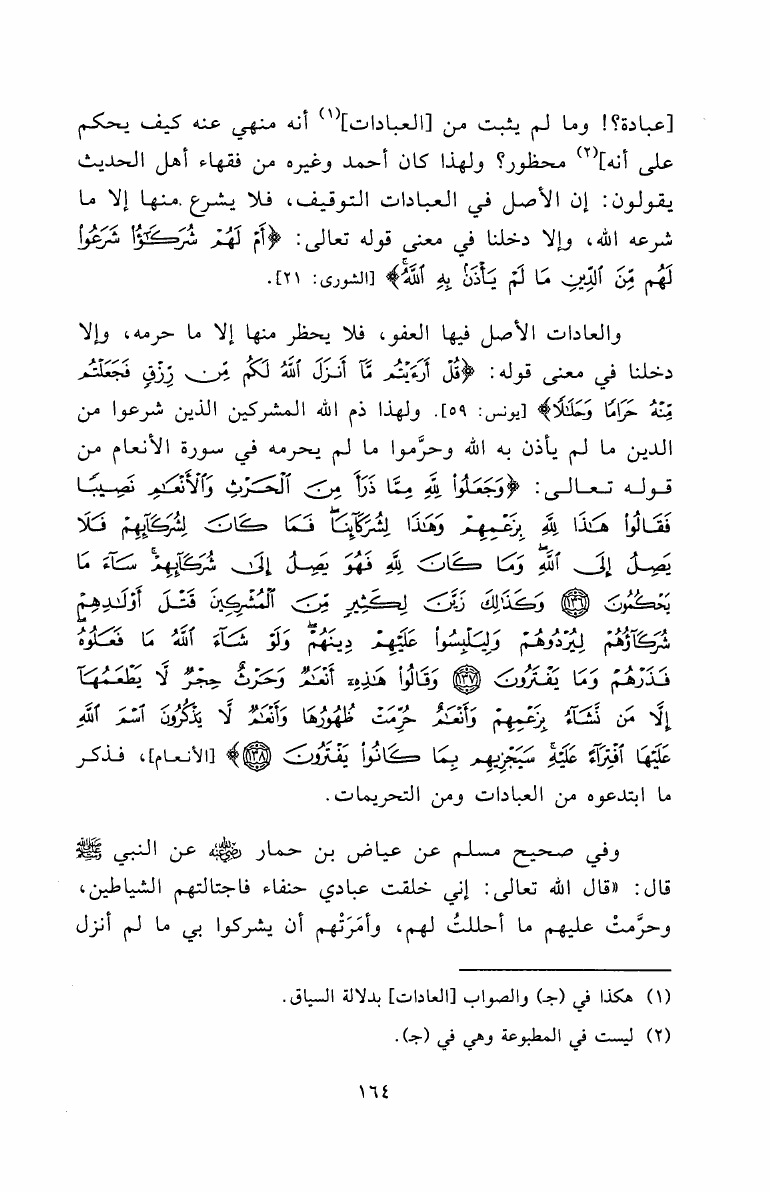 [عبادة؟! وما لم يثبت من [العبادات](١) أنه منهي عنه كيف يحكم
على أنه](٢) محظور؟ ولهذا كان أحمد وغيره من فقهاء أهل الحديث
يقولون: إن الأصل في العبادات التوقيف، فلا يشرع منها إلا ما
شرعه الله، وإلا دخلنا في معنى قوله تعالى: ﴿أَمْ لَهُمْ شُرَكَٰٓؤُا۟ شَرَعُوا۟
لَهُم مِّنَ ٱلدِّينِ مَا لَمْ يَأْذَنۢ بِهِ ٱللَّهُ ۚ﴾ [الشورى: ٢١].
والعادات الأصل فيها العفو، فلا يحظر منها إلا ما حرمه، وإلا
دخلنا في معنى قوله: ﴿قُلْ أَرَءَيْتُم مَّآ أَنزَلَ ٱللَّهُ لَكُم مِّن رِّزْقٍ فَجَعَلْتُم
مِّنْهُ حَرَامًا وَحَلَٰلًا﴾ [يونس: ٥٩]. ولهذا ذم الله المشركين الذين شرعوا من
الدين ما لم يأذن به الله وحرَّموا ما لم يحرمه في سورة الأنعام من
قوله تعالى: ﴿وَجَعَلُوا۟ لِلَّهِ مِمَّا ذَرَأَ مِنَ ٱلْحَرْثِ وَٱلْأَنْعَٰمِ نَصِيبًا
فَقَالُوا۟ هَٰذَا لِلَّهِ بِزَعْمِهِمْ وَهَٰذَا لِشُرَكَآئِنَا ۖ فَمَا كَانَ لِشُرَكَآئِهِمْ فَلَا
يَصِلُ إِلَى ٱللَّهِ ۖ وَمَا كَانَ لِلَّهِ فَهُوَ يَصِلُ إِلَىٰ شُرَكَآئِهِمْ ۗ سَآءَ مَا
يَحْكُمُونَ ١٣٦ وَكَذَٰلِكَ زَيَّنَ لِكَثِيرٍ مِّنَ ٱلْمُشْرِكِينَ قَتْلَ أَوْلَٰدِهِمْ
شُرَكَآؤُهُمْ لِيُرْدُوهُمْ وَلِيَلْبِسُوا۟ عَلَيْهِمْ دِينَهُمْ ۖ وَلَوْ شَآءَ ٱللَّهُ مَا فَعَلُوهُ ۖ
فَذَرْهُمْ وَمَا يَفْتَرُونَ ١٣٧ وَقَالُوا۟ هَٰذِهِۦٓ أَنْعَٰمٌ وَحَرْثٌ حِجْرٌ لَّا يَطْعَمُهَآ
إِلَّا مَن نَّشَآءُ بِزَعْمِهِمْ وَأَنْعَٰمٌ حُرِّمَتْ ظُهُورُهَا وَأَنْعَٰمٌ لَّا يَذْكُرُونَ ٱسْمَ ٱللَّهِ
عَلَيْهَا ٱفْتِرَآءً عَلَيْهِ ۚ سَيَجْزِيهِم بِمَا كَانُوا۟ يَفْتَرُونَ ١٣٨﴾ [الأنعام]، فذكر
ما ابتدعوه من العبادات ومن التحريمات.
وفي صحيح مسلم عن عياض بن حمار رضي الله عنه عن النبي ﷺ
قال: «قال الله تعالى: إني خلقت عبادي حنفاء فاجتالتهم الشياطين،
وحرَّمتْ عليهم ما أحللتُ لهم، وأمَرَتْهم أن يشركوا بي ما لم أنزل
(١) هكذا في (جـ) والصواب [العادات] بدلالة السياق.
(٢) ليست في المطبوعة وهي في (جـ).
١٦٤